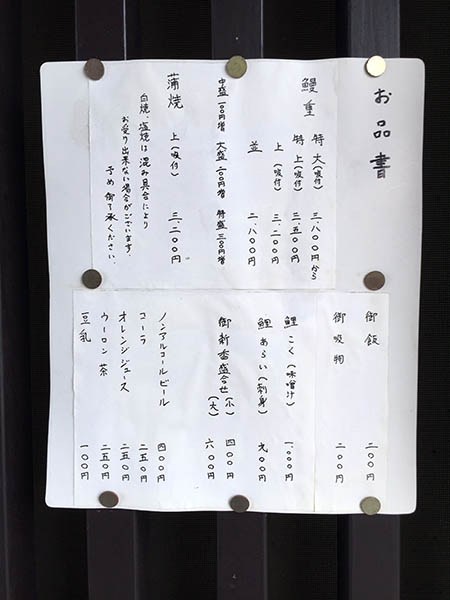 お品書
鰻重 特大(吸付) 三、八〇〇円から
特上(吸付) 三、五〇〇円
上(吸付) 三、二〇〇円
並 二、八〇〇円
中盛一〇〇円増 大盛二〇〇円増 特盛三〇〇円増
蒲焼 上(吸付) 三、二〇〇円
白焼、塩焼は混み具合により
お受け出来ない場合がございます。
予め御了承ください。
御飯 二〇〇円
御吸物 二〇〇円
鯉こく(味噌汁) 一、〇〇〇円
鯉あらい(刺身) 九〇〇円
御新香盛合せ(小) 四〇〇円
(大) 六〇〇円
ノンアルコールビール 四〇〇円
コーラ 二五〇円
オレンジジュース 二五〇円
ウーロン茶 二五〇円
豆乳 一〇〇円